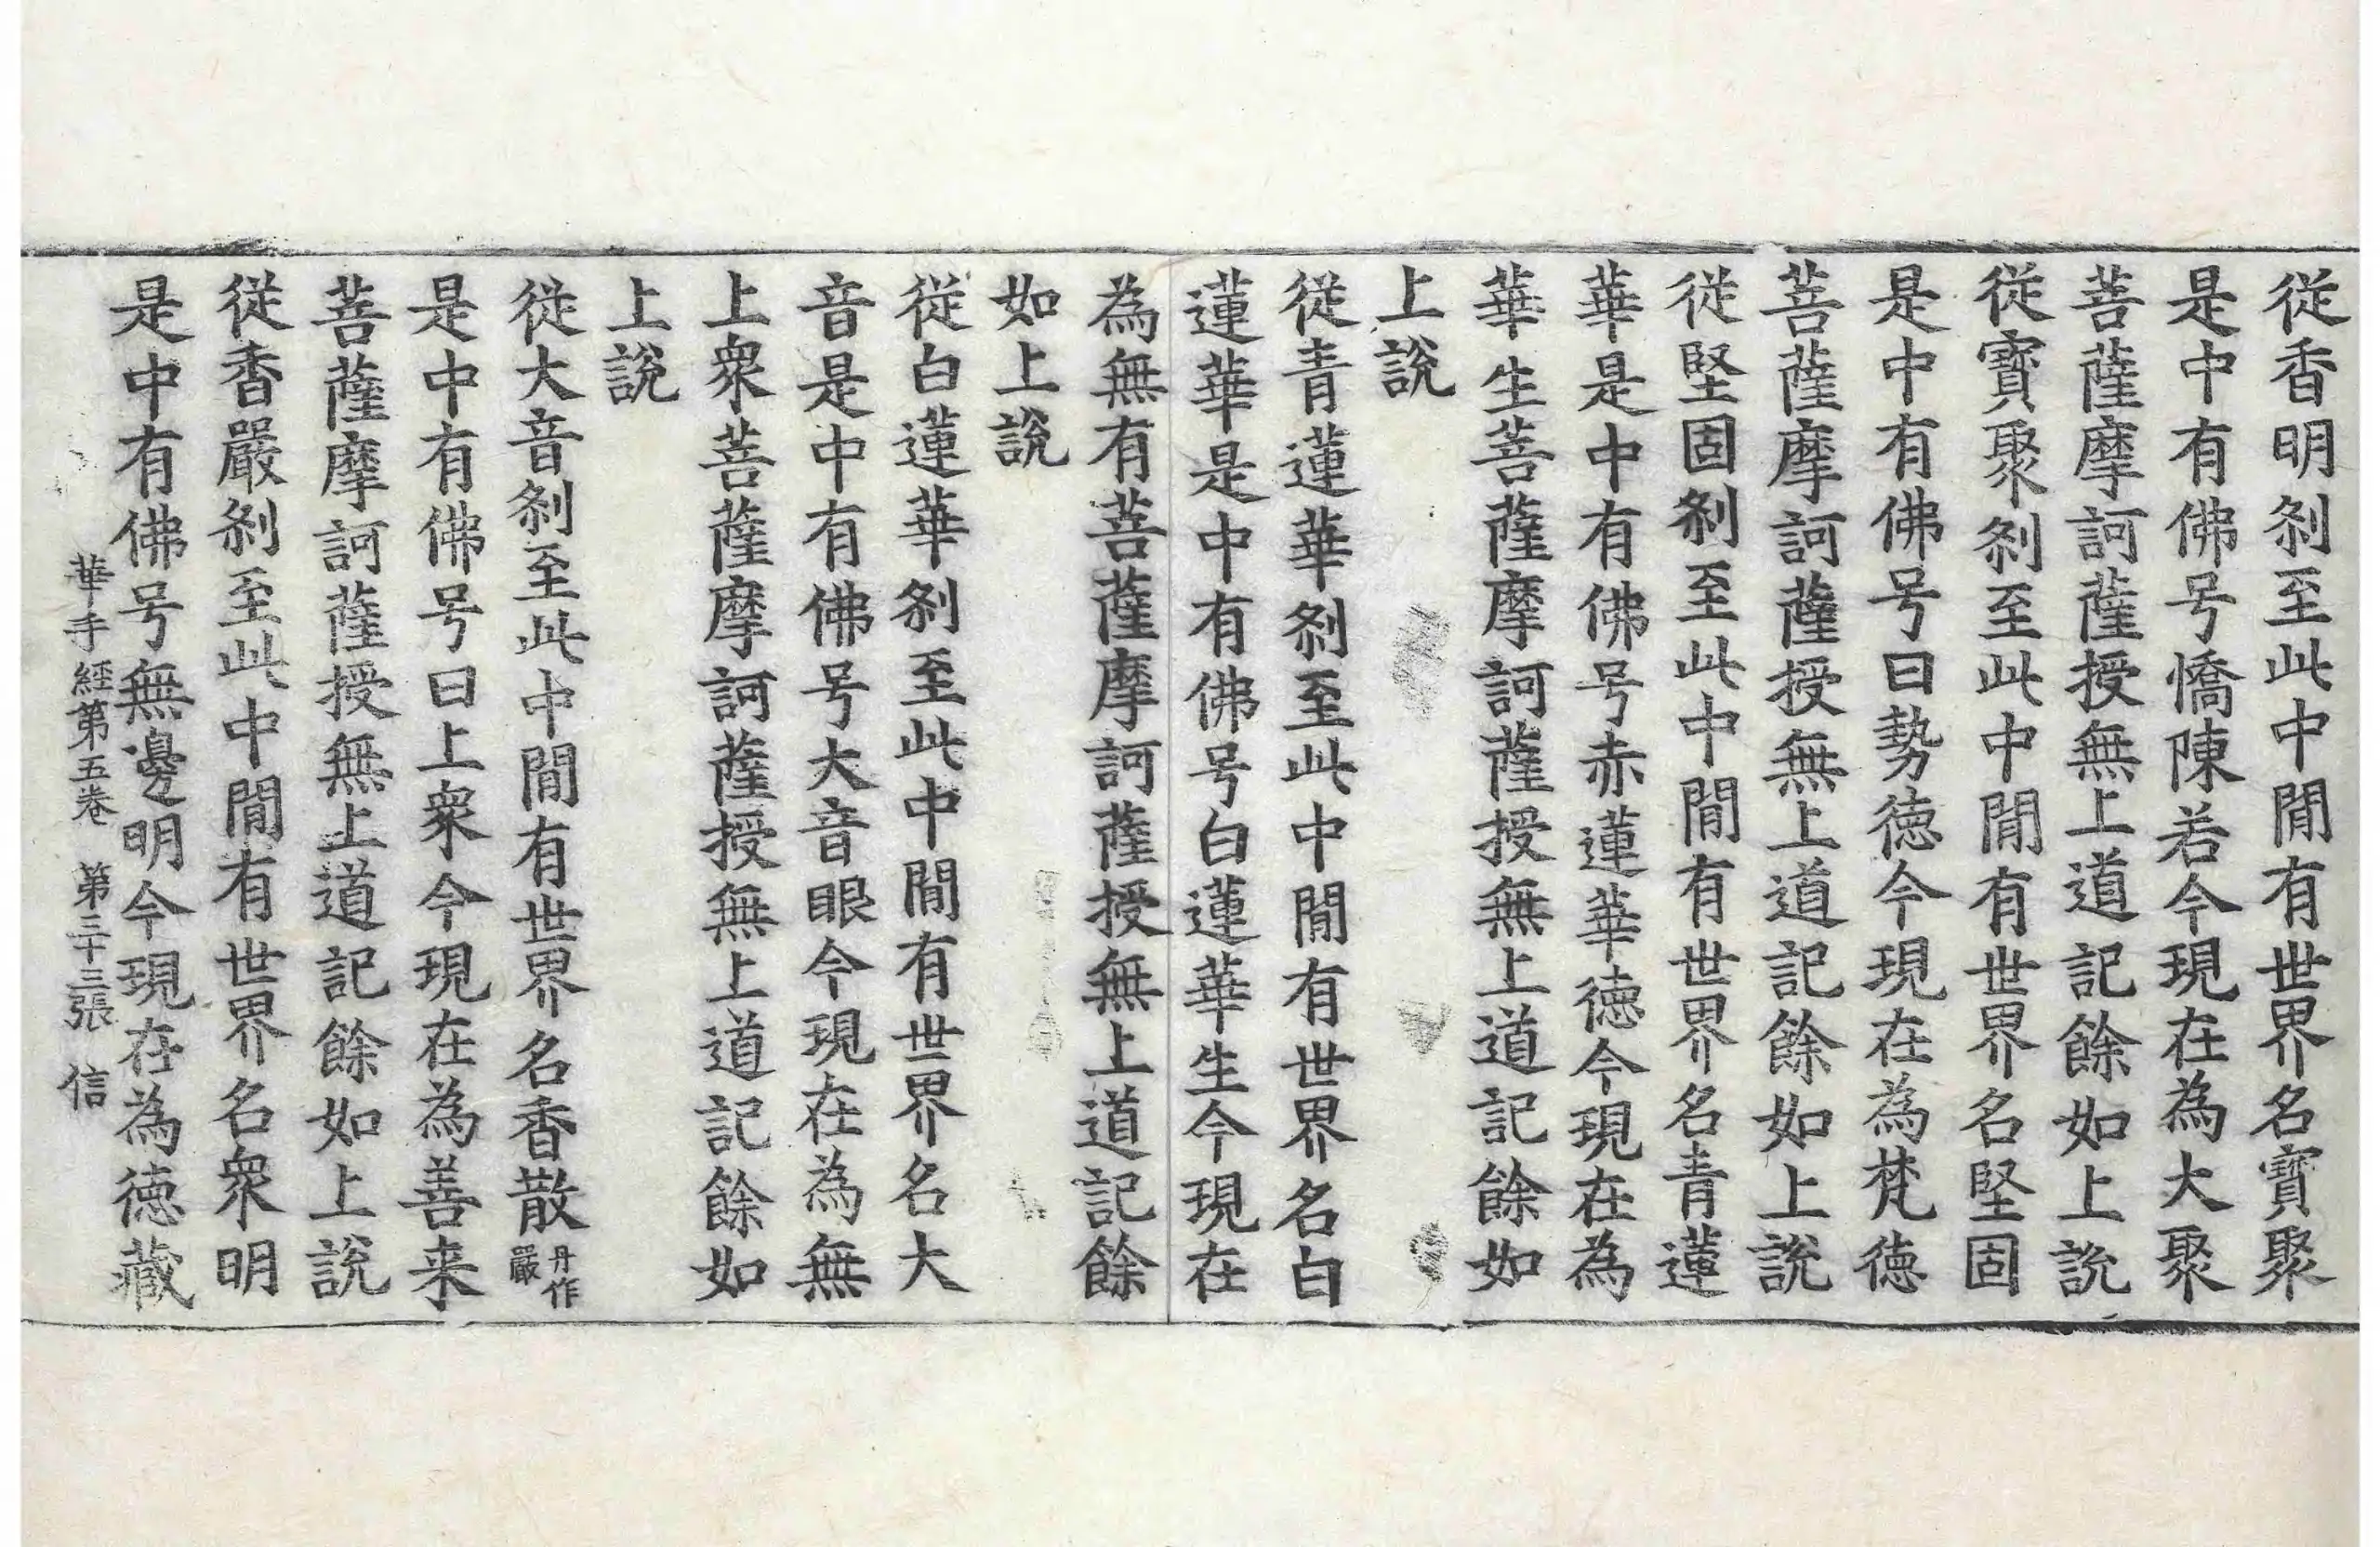 從香明剎至此中閒有世界名寶聚
是中有佛号憍陳若今現在為大聚
菩薩摩訶薩授無上道記餘如上說
從寶聚剎至此中閒有世界名堅固
是中有佛号曰勢德今現在為梵德
菩薩摩訶薩授無上道記餘如上說
從堅固剎至此中閒有世界名青蓮
華是中有佛号赤蓮華德今現在為
華生菩薩摩訶薩授無上道記餘如
上說
從青蓮華剎至此中閒有世界名白
蓮華是中有佛号白蓮華生今現在
為無有菩薩摩訶薩授無上道記餘
如上說
從白蓮華剎至此中閒有世界名大
音是中有佛号大音眼今現在為無
上眾菩薩摩訶薩授無上道記餘如
上說
從大音剎至此中閒有世界名香散丹作嚴
是中有佛号曰上眾今現在為善来
菩薩摩訶薩授無上道記餘如上說
從香嚴剎至此中閒有世界名眾明
是中有佛号無邊明今現在為德藏
華手經第五卷 第三十三張 信